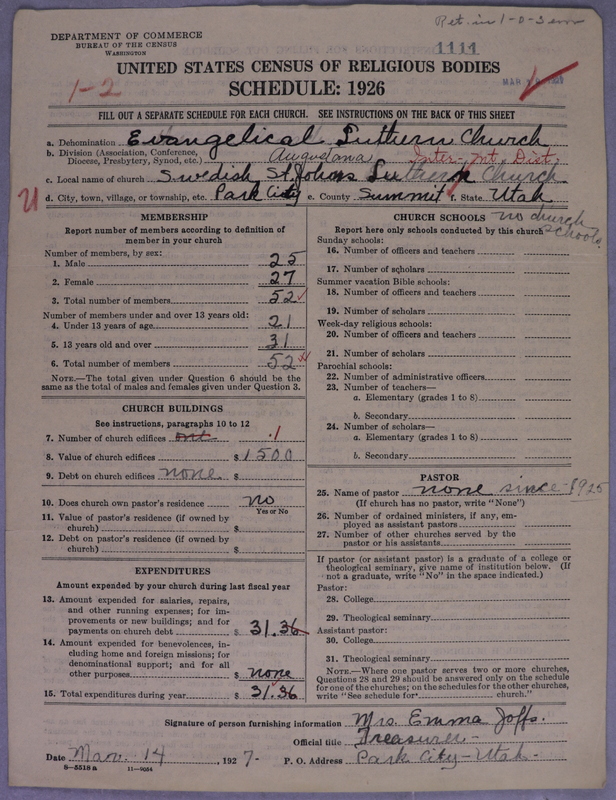 Ret. in 1-0-3 em
DEPARTMENT OF COMMERCE
BUREAU OF THE CENSUS
WASHINGTON
1111
UNITED STATES CENSUS OF RELIGIOUS BODIES
MAR
1-2
SCHEDULE: 1926
FILL OUT A SEPARATE SCHEDULE FOR EACH CHURCH. SEE INSTRUCTIONS ON THE BACK OF THIS SHEET
a. Denomination Evangelical Luthern Church
b. Division (Association, Conference, Diocese, Presbytery, Synod, etc.) Augustana Inter-Mt. Dist.
c. Local name of church Swedish St. Johns Lutheran Church
U d. City, town, village, or township, etc. Park City e. County Summit f. State Utah
MEMBERSHIP
Report number of members according to definition of
member in your church
Number of members, by sex:
1. Male 25
2. Female 27
3. Total number of members 52
Number of members under and over 13 years old:
4. Under 13 years of age 21
5. 13 years old and over 31
6. Total number of members 52
NOTE.—The total given under Question 6 should be the
same as the total of males and females given under Question 3.
CHURCH BUILDINGS
See instructions, paragraphs 10 to 12
7. Number of church edifices one 1
8. Value of church edifices $ 1500
9. Debt on church edifices none. $
10. Does church own pastor's residence no
Yes or No
11. Value of pastor's residence (if owned by
church) $
12. Debt on pastor's residence (if owned by
church) $
EXPENDITURES
Amount expended by your church during last fiscal year
13. Amount expended for salaries, repairs,
and other running expenses; for im-
provements or new buildings; and for
payments on church debt $ 31.36
14. Amount expended for benevolences, in-
cluding home and foreign missions; for
denominational support; and for all
other purposes $ none
15. Total expenditures during year $ 31.36
CHURCH SCHOOLS no church schools
Report here only schools conducted by this church
Sunday schools:
16. Number of officers and teachers
17. Number of scholars
Summer vacation Bible schools:
18. Number of officers and teachers
19. Number of scholars
Week-day religious schools:
20. Number of officers and teachers
21. Number of scholars
Parochial schools:
22. Number of administrative officers
23. Number of teachers—
a. Elementary (grades 1 to 8)
b. Secondary
24. Number of scholars—
a. Elementary (grades 1 to 8)
b. Secondary
PASTOR
25. Name of pastor none since 1925
(If church has no pastor, write "None")
26. Number of ordained ministers, if any, em-
ployed as assistant pastors
27. Number of other churches served by the
pastor or his assistants
If pastor (or assistant pastor) is a graduate of a college or
theological seminary, give name of institution below. (If
not a graduate, write "No" in the space indicated.)
Pastor:
28. College
29. Theological seminary
Assistant pastor:
30. College
31. Theological seminary
NOTE.—Where one pastor serves two or more churches,
Questions 28 and 29 should be answered only on the schedule
for one of the churches; on the schedules for the other churches,
write "See schedule for church."
Signature of person furnishing information Mrs. Emma Joffs.
Official title Treasurer-
Date Mar. 14, 1927- P. O. Address Park City-Utah-
8—5518 a 11—9054